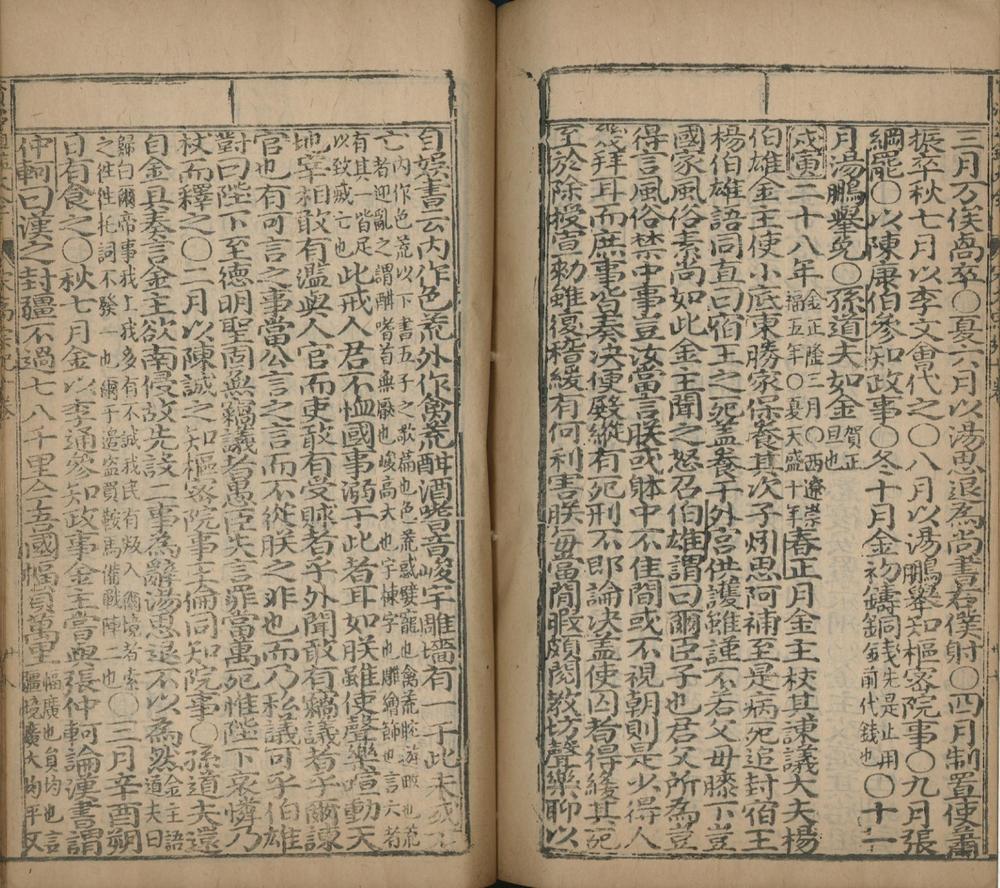 三月万俟卨卒○夏六月以湯思退爲尚書右僕射○四月制置使蕭
振卒秋七月以李文會代之○八月以湯鵬舉知樞密院事○九月張
綱罷○以陳康伯參知政事○冬十月金初鑄銅戋先是止用金前代錢也○十一
月湯鵬舉免○孫道夫如金賀正旦也
戊寅二十八年金正隆三月○西遼崇福五年○夏天盛十年春正月金主杖其諫議大夫楊
伯雄金王使小底東勝家保養其次子矧思阿補至是病死追封宿王
楊伯雄語同直曰宿王之死盖養于外宫供護雖謹不若父毋膝下豈
國家風俗素尚如此金主聞之怒召伯雄謂曰爾臣子也君父所爲豈
得言風俗禁中事豈汝當言朕或躰中不佳間或不視朝則是少得人
幾拜耳而庶事皆奏決便殿縱有死刑不即論決盖使囚者得緩其死
至於除授宣勅雖復稽緩有何利害朕每當閒暇頗閱教坊聲樂聊以
自娛書云内作色荒外作禽荒酣酒嗜音峻宇雕墻有一于此未或不
亡内作色荒以下書五子之歌篇也色荒惑嬖寵也禽荒耽遊畋也荒者迎亂之謂酣嗜者皆無厭也峻高大也宇棟宇也雕繪飾也言六者
有其一皆足以致滅亡也此戒人君不恤國事溺于此者耳如朕雖使聲樂喧動天
地宰相敢有濫與人官而吏敢有受賕者乎外間敢有竊議者乎爾諫
官也有可言之事當公言之言而不從朕之非也而乃私議可乎伯雄
對曰陛下至德明聖固無竊議者愚臣失言罪當萬死惟陛下哀憐乃
杖而釋之○二月以陳誠之知樞密院事王倫同知院事○孫道夫還
自金具奏言金主欲南侵故先設二事爲辭湯思退不以爲然金主語道夫曰
歸白爾帝事我上我多有不誠我民有叛入爾境者索之往往托詞不發一也爾于邉盗買鞍馬備戰陣二也○三月辛酉朔
日有食之○秋七月金以李通參知政事金主嘗與張仲軻論漢書謂
仲軻曰漢之封疆不過七八千里今吾國幅員萬里幅廣也員均也言疆境廣大均平又